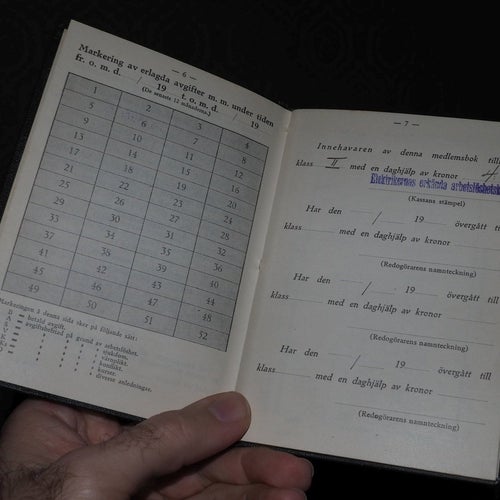 — 6 —
Markering av erlagda avgifter m. m. under tiden
fr. o. m. d. / 19 t. o. m. d. / 19
(De senaste 12 månaderna.)
1 2 3 4
5 6 7 8
9 10 11 12
13 14 15 16
17 18 19 20
21 22 23 24
25 26 27 28
29 30 31 32
33 34 35 36
37 38 39 40
41 42 43 44
45 46 47 48
49 50 51 52
Markeringen å denna sida sker på följande sätt:
B = betald avgift.
A = avgiftsbefriad på grund av arbetslöshet.
S = " " " " sjukdom.
V = " " " " värnplikt.
K = " " " " konflikt.
" " " " kurser.
D = " " " " diverse anledningar.
— 7 —
Innehavaren av denna medlemsbok till
klass II med en daghjälp av kronor 4
Elektrikernas erkända arbetslöshetsk
(Kassans stämpel)
Har den / 19 övergått till
klass med en daghjälp av kronor
(Redogörarens namnteckning)
Har den / 19 övergått till
klass med en daghjälp av kronor
(Redogörarens namnteckning)
Har den / 19 övergått till
klass med en daghjälp av kronor
(Redogörarens namnteckning)